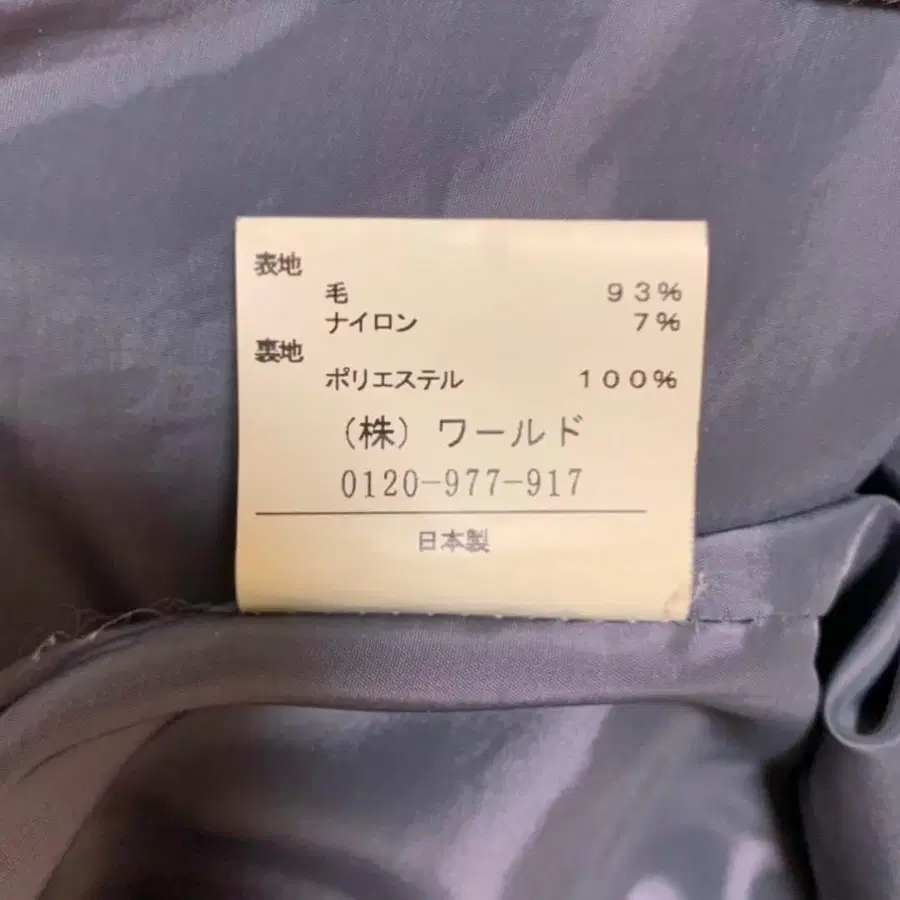 表地
毛 93%
ナイロン 7%
裏地
ポリエステル 100%
(株) ワールド
0120-977-917
日本製